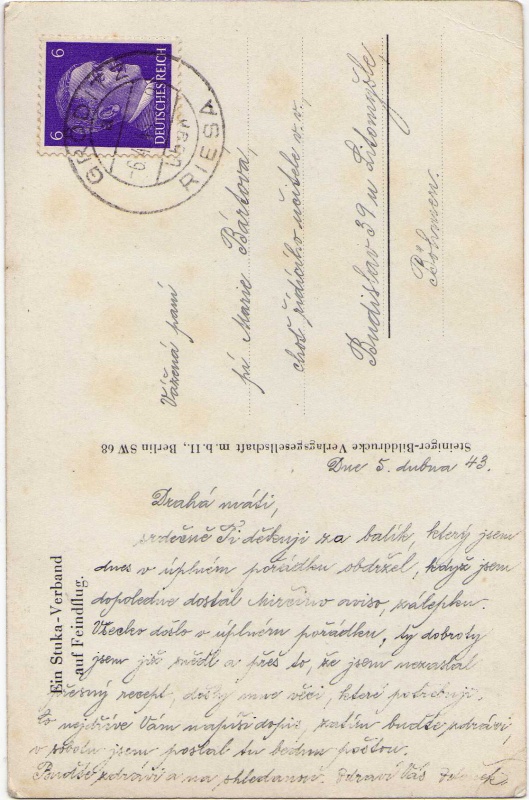 6 6
DEUTSCHES REICH
GRÖDITZ
RIESA
Vážená paní
pí Marie Bártová,
choť řídícího učitele v.v.,
Budislav 39 u Litomyšle,
Böhmen.
Steiniger-Bilddrucke Verlagsgesellschaft m. b. H., Berlin SW 68
Ein Stuka-Verband
auf Feindflug.
Dne 5. dubna 43.
Drahá máti,
srdečně Ti děkuji za balík, který jsem
dnes v úplném pořádku obdržel, když jsem
dopoledne dostal aviso, nálepku.
Všecko došlo v úplném pořádku, ty dobroty
jsem již snědl a přes to, že jsem nezaslal
přesný recept, došly mne věci, které potřebuji.
Co nejdříve Vám napíši dopis, zatím buďte zdrávi,
v sobotu jsem poslal tu bednu poštou.
Buďte zdrávi a na shledanou. Zdraví Vás